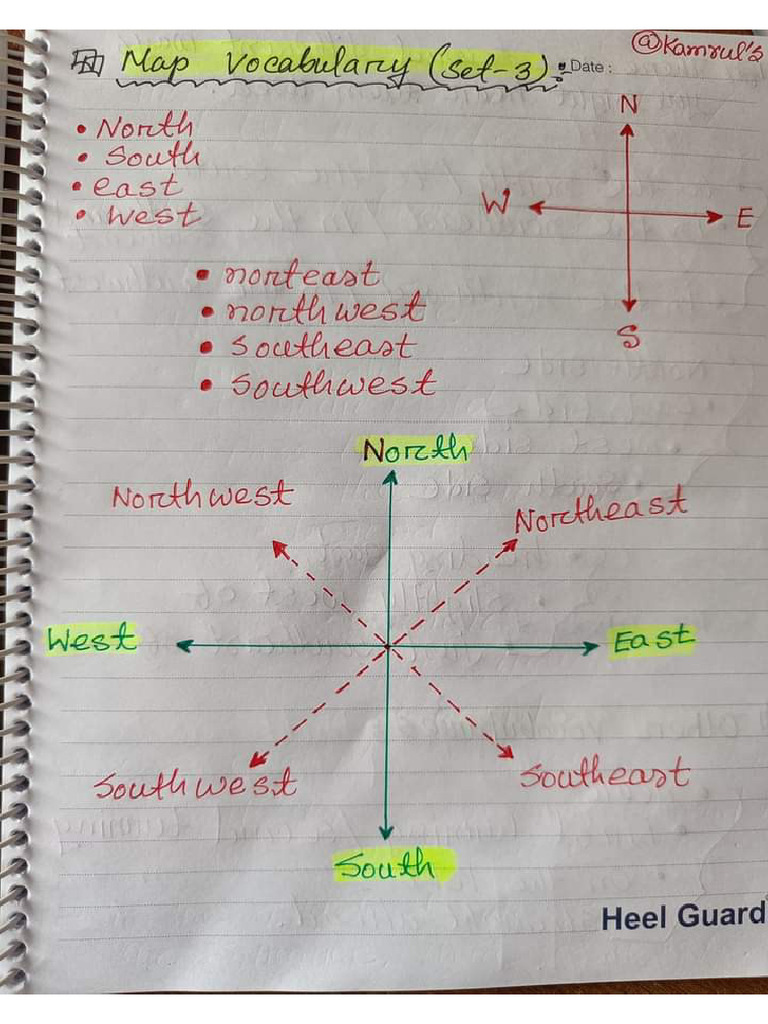 @Kamrul's
Map Vocabulary (Set-3):
Date :
• North
• South
• east
• west
N
W
E
S
• norteast
• northwest
• southeast
• Southwest
North
Northwest
Northeast
West
East
Southwest
Southeast
South
Heel Guard